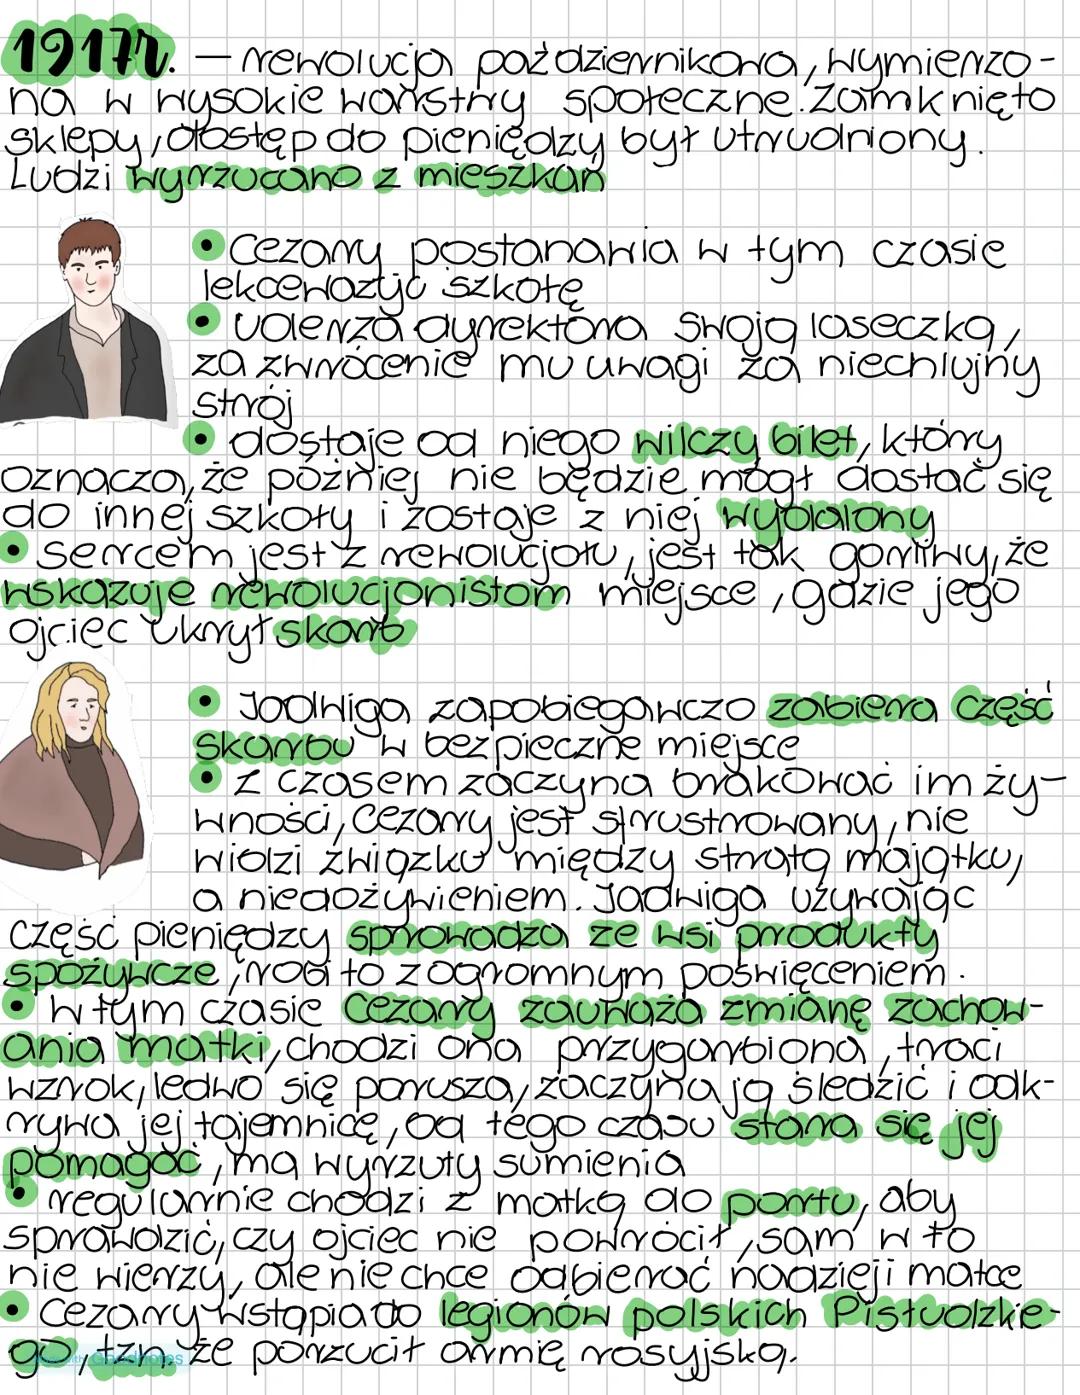 1917r. — rewolucja październikowa, wymierzo-
na w wysokie warstwy społeczne. Zamknięto
sklepy, dostęp do pieniędzy był utrudniony.
Ludzi wyrzucano z mieszkań
• Cezary postanawia w tym czasie
lekceważyć szkołę
• Uderza dyrektora swoją laseczką,
za zwrócenie mu uwagi za niechlujny
strój
• dostaje od niego wilczy bilet, który
oznacza, że później nie będzie mógł dostać się
do innej szkoły i zostaje z niej wydalony
• Sercem jest z rewolucją tu, jest tak gorliwy, że
wskazuje rewolucjonistom miejsce, gdzie jego
ojciec ukrył skarb
• Jadwiga zapobiegawczo zabiera część
skarbu w bezpieczne miejsce
• z czasem zaczyna brakować im ży-
wności, Cezary jest sfrustrowany, nie
widzi związku między stratą majątku,
a niedożywieniem. Jadwiga używając
część pieniędzy sprowadza ze wsi produkty
spożywcze, robi to z ogromnym poświęceniem.
• w tym czasie Cezary zauważa zmianę zachow-
ania matki, chodzi ona przygarbiona, traci
wzrok, ledwo się porusza, zaczyna ją śledzić i odk-
rywa jej tajemnicę, od tego czasu stara się jej
pomagać, ma wyrzuty sumienia
• regularnie chodzi z matką do portu, aby
sprawdzić, czy ojciec nie powrócił, sam w to
nie wierzy, ale nie chce odbierać nadzieji matce
• Cezary wstąpia do legionów polskich Pisłudzkie-
go, tzn. że porzucił armię rosyjską.